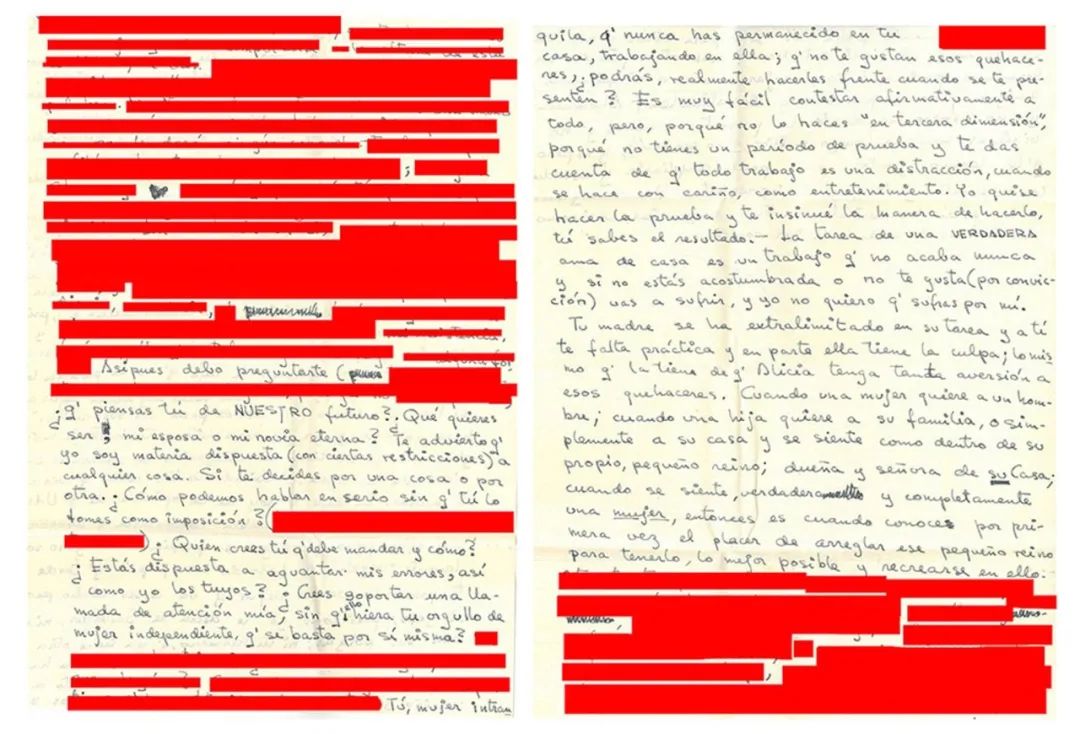 Asi pues debo preguntarte (
¿q' piensas tú de NUESTRO futuro?. Qué quieres
ser, mi esposa o mi novia eterna? Te advierto q'
yo soy materia dispuesta (con ciertas restricciones) a
cualquier cosa. Si te decides por una cosa o por
otra. ¿Cómo podemos hablar en serio sin q' tú lo
tomes como imposición? (
); ¿Quien crees tú q' debe mandar y cómo?
¿Estás dispuesta a aguantar mis errores, así
como yo los tuyos? ¿Crees soportar una lla-
mada de atención mía, sin q' ello hiera tu orgullo de
mujer independiente, q' se basta por sí misma?
Tú, mujer intran
quila, q' nunca has permanecido en tu
casa, trabajando en ella; q' no te gustan esos quehace-
res, ¿podrás, realmente hacerles frente cuando se te pre-
senten? Es muy fácil contestar afirmativamente a
todo, pero, porqué no lo haces "en tercera dimensión",
porqué no tienes un período de prueba y te das
cuenta de q' todo trabajo es una distracción, cuando
se hace con cariño, como entretenimiento. Yo quise
hacer la prueba y te insinué la manera de hacerlo,
tú sabes el resultado.- La tarea de una VERDADERA
ama de casa es un trabajo q' no acaba nunca
y si no estás acostumbrada o no te gusta (por convic-
ción) vas a sufrir, y yo no quiero q' sufras por mí.
Tu madre se ha extralimitado en su tarea y a tí
te falta práctica y en parte ella tiene la culpa; lo mis
mo q' la tiene de q' Alicia tenga tanta aversión a
esos quehaceres. Cuando una mujer quiere a un hom-
bre; cuando una hija quiere a su familia, o sim-
plemente a su casa y se siente como dentro de su
propio, pequeño reino; dueña y señora de su Casa;
cuando se siente, verdadera y completamente
una mujer, entonces es cuando conoce por pri-
mera vez el placer de arreglar ese pequeño reino
para tenerlo, lo mejor posible y recrearse en ello: